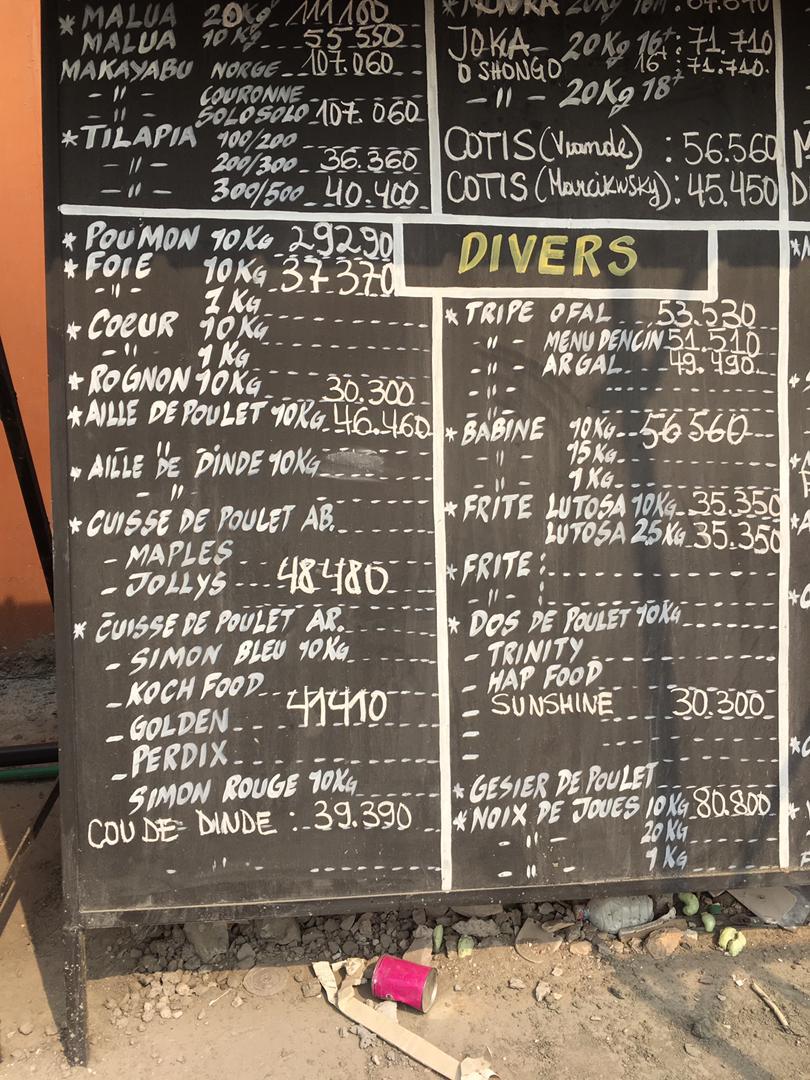 * MALUA 20Kg 111100
MALUA 10Kg 55550
MAKAYABU NORGE 107.060
- " - COURONNE
SOLOSOLO 107.060
* TILAPIA 100/200
- " - 200/300 36.360
- " - 300/500 40.400
* POUMON 10KG 29290
* FOIE 10KG 37370
- " - 1KG
* COEUR 10KG
- " 1KG
* ROGNON 10KG 30.300
* AILLE DE POULET 10KG 46.460
* AILLE DE DINDE 10KG
- "
* CUISSE DE POULET AB.
- MAPLES
- JOLLYS 48480
* CUISSE DE POULET AR.
- SIMON BLEU 10KG
- KOCH FOOD
- GOLDEN 41410
- PERDIX
SIMON ROUGE 10KG
COU DE DINDE : 39.390
JOKA 20Kg 16+: 71.710
O SHONGO 16+: 71.710.
- " - 20Kg 18+
COTIS (Viande) : 56.560
COTIS (Marcikwsky) : 45.450
DIVERS
* TRIPE OFAL 53.530
- " - MENUDENCIN 51.510
- " - ARGAL 49.490
- " -
- " -
* BABINE 10KG 56560
- " - 15KG
- " - 1KG
* FRITE LUTOSA 10KG 35.350
LUTOSA 2.5KG 35.350
* FRITE :
- " - :
* DOS DE POULET 10KG
- TRINITY
- HAP FOOD
- SUNSHINE 30.300
-
-
* GESIER DE POULET
* NOIX DE JOUES 10KG 80.800
- " - 20KG
- " - 1KG